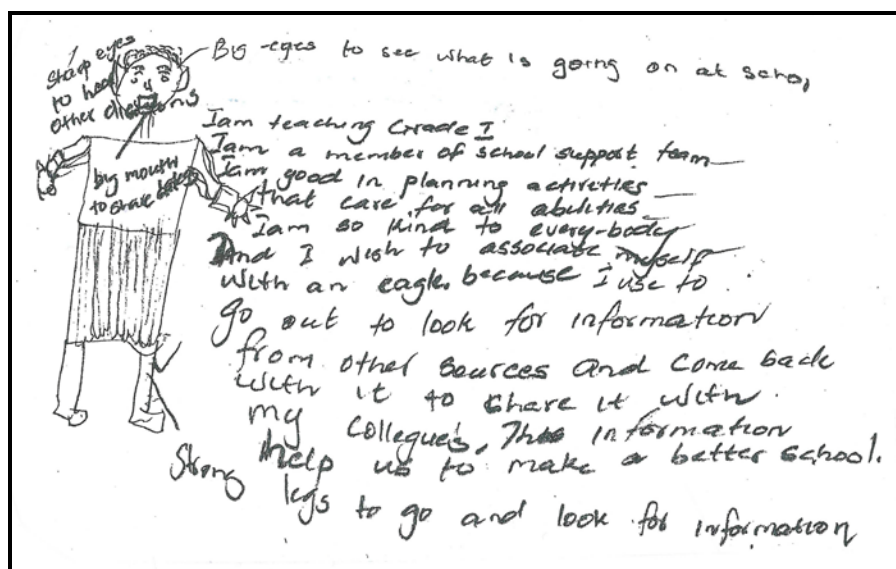 Big eyes to see what is going on at scho,
sharp eyes
to hear
other directions
big mouth
to share
Iam teaching Grade I
Iam a member of school support team
Iam good in planning activities
that care for all abilities
Iam so kind to every-body
And I wish to associate myself
with an eagle because I use to
go out to look for information
from other sources and come back
with it to share it with
my collegue's. This information
help us to make a better school.
Strong legs to go and look for information